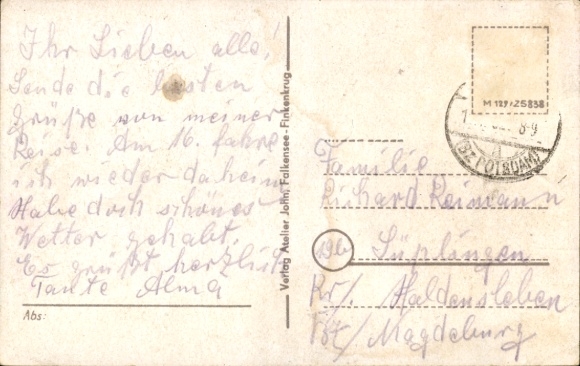 Ihr Lieben alle!
Sende die besten
Grüße von meiner
Reise. Am 16. fahre
ich wieder daheim
Habe doch schönes
Wetter gehabt.
Es grüßt herzlich
Tante Alma
Abs:
Verlag Atelier John, Falkensee-Finkenkrug
M 129/Z5838
8-9
(Bz. POTSDAM)
Familie
Richard Reimann
19b
Süplingen
Kr/. Haldensleben
Bz/Magdeburg